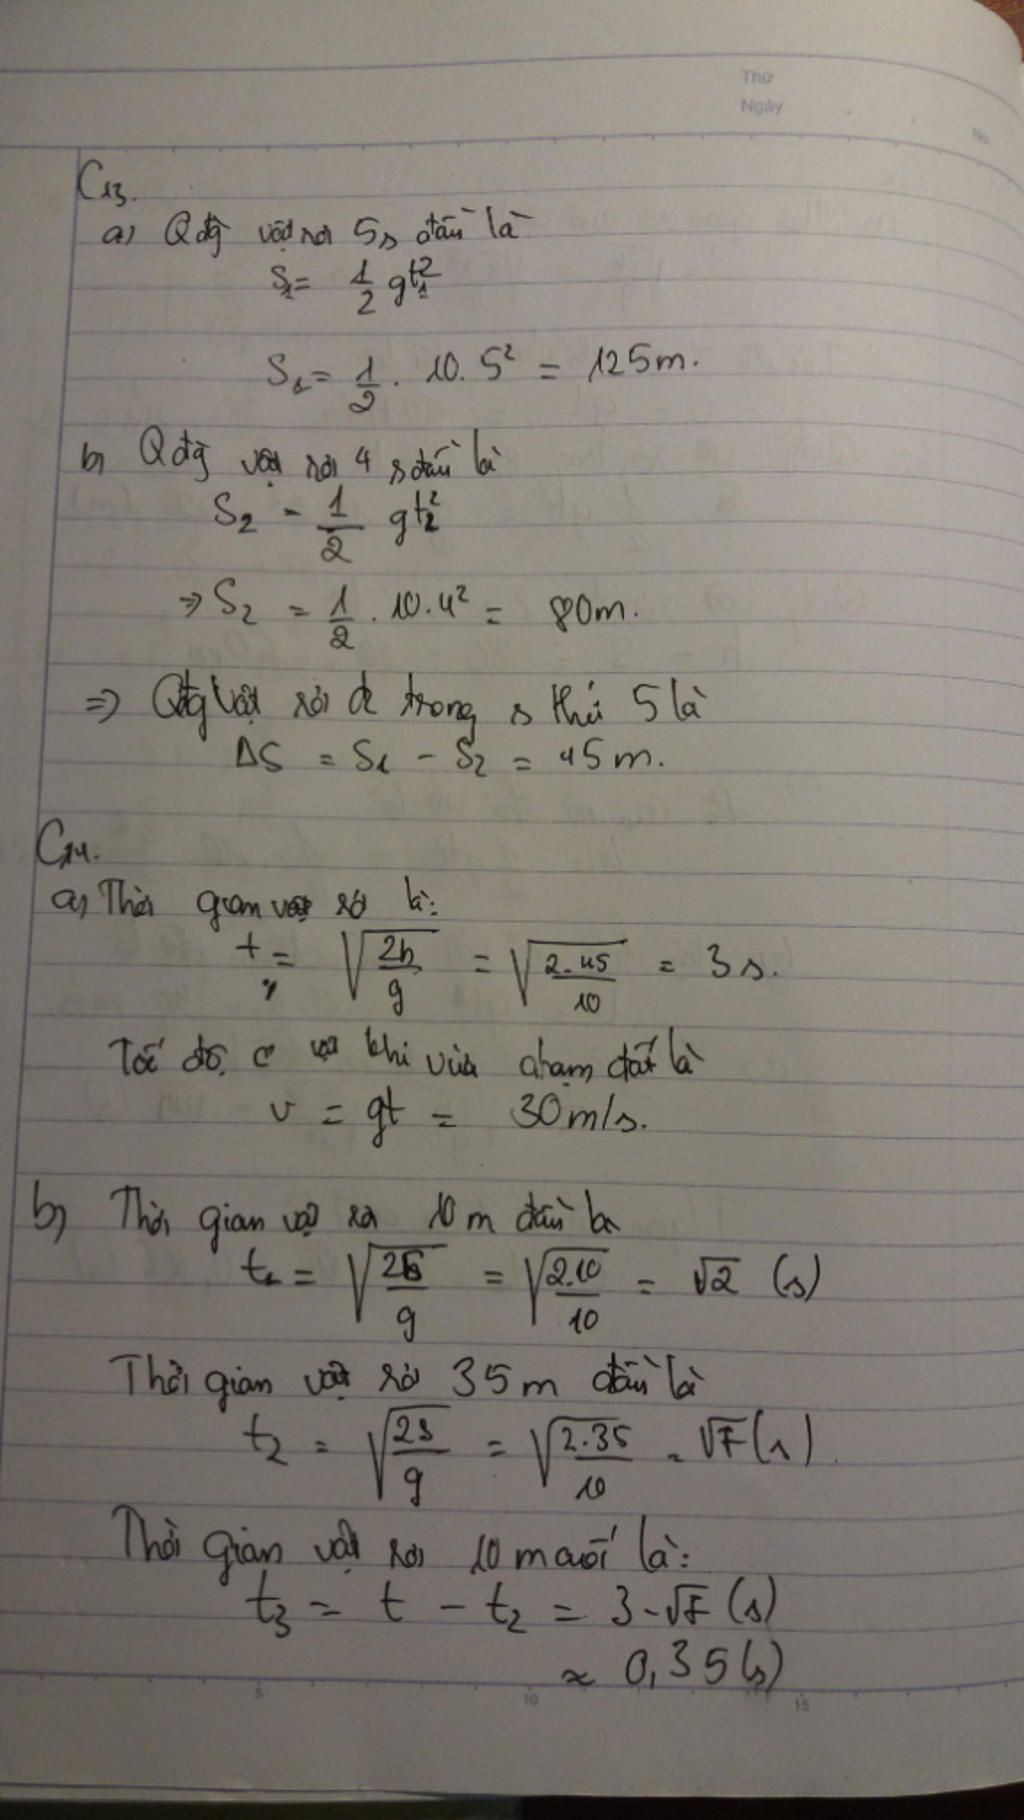 Thứ
Ngày
No.
C13.
a) Qđg vật rơi 5s đầu là
S₁ = 1/2 gt₁²
S₁ = 1/2 . 10. 5² = 125m.
b) Qđg vật rơi 4 s đầu là
S₂ = 1/2 gt₂²
=> S₂ = 1/2 . 10.4² = 80m.
=> Qđg vật rơi đc trong s thứ 5 là
ΔS = S₁ - S₂ = 45m.
C14.
a) Thời gian vật rơi là:
t = √(2h/g) = √(2.45/10) = 3s.
Tốc độ c vật khi vừa chạm đất là
v = gt = 30m/s.
b) Thời gian vật rơi 10m đầu là
t₁ = √(2S/g) = √(2.10/10) = √2 (s)
Thời gian vật rơi 35m đầu là
t₂ = √(2s/g) = √(2.35/10) = √7 (s)
Thời gian vật rơi 10m cuối là:
t₃ = t - t₂ = 3 - √7 (s)
≈ 0,35(s)
5 10 15